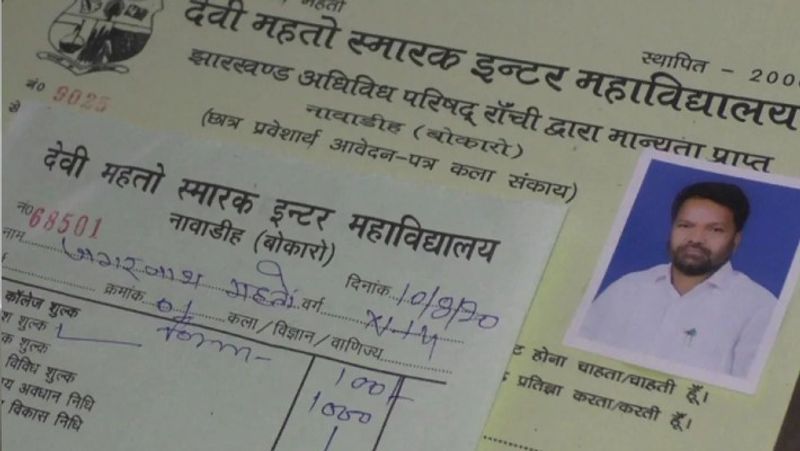 महतो
देवी महतो स्मारक इन्टर महाविद्यालय
स्थापित - 200
झारखण्ड अधिविध परिषद् राँची द्वारा मान्यता प्राप्त
नावाडीह (बोकारो)
(छात्र प्रवेशार्थ आवेदन-पत्र कला संकाय)
नं० 9025
देवी महतो स्मारक इन्टर महाविद्यालय
नं० 68501
नावाडीह (बोकारो)
नाम जगरनाथ महतो वर्ग
दिनांक 10/8/20
क्रमांक 01 कला/विज्ञान/वाणिज्य
कॉलेज शुल्क
श शुल्क
क शुल्क
विविध शुल्क
य अवधान निधि
विकास निधि
100/-
1000
होना चाहता/चाहती हूँ।
प्रतिज्ञा करता/करती हूँ।